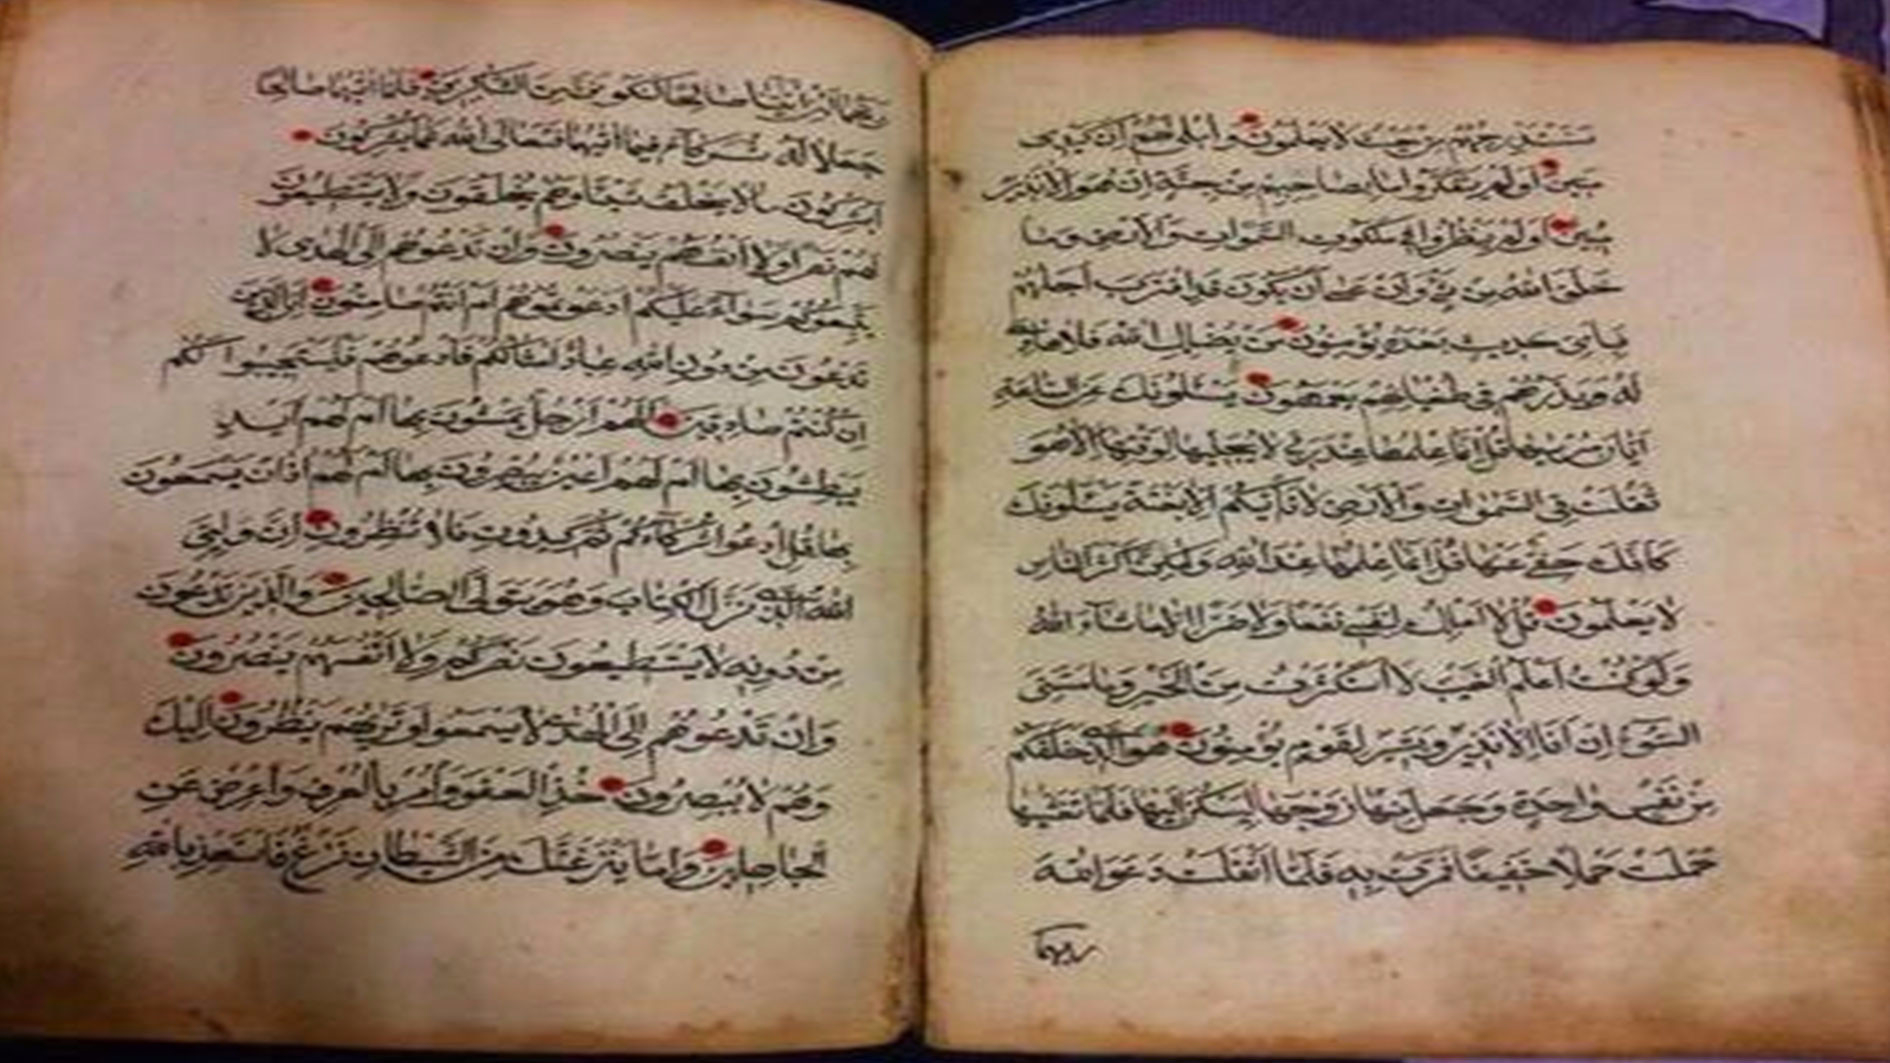 سَنَسْتَدْرِجُهُمْ مِنْ حَيْثُ لَا يَعْلَمُونَ وَأُمْلِي لَهُمْ إِنَّ كَيْدِي
مَتِينٌ أَوَلَمْ يَتَفَكَّرُوا مَا بِصَاحِبِهِمْ مِنْ جِنَّةٍ إِنْ هُوَ إِلَّا نَذِيرٌ
مُبِينٌ أَوَلَمْ يَنْظُرُوا فِي مَلَكُوتِ السَّمٰوَاتِ وَالْأَرْضِ وَمَا
خَلَقَ اللهُ مِنْ شَيْءٍ وَأَنْ عَسَىٰ أَنْ يَكُونَ قَدِ اقْتَرَبَ أَجَلُهُمْ
فَبِأَيِّ حَدِيثٍ بَعْدَهُ يُؤْمِنُونَ مَنْ يُضْلِلِ اللهُ فَلَا هَادِيَ
لَهُ وَيَذَرُهُمْ فِي طُغْيَانِهِمْ يَعْمَهُونَ يَسْئَلُونَكَ عَنِ السَّاعَةِ
أَيَّانَ مُرْسٰيهَا قُلْ إِنَّمَا عِلْمُهَا عِنْدَ رَبِّي لَا يُجَلِّيهَا لِوَقْتِهَا إِلَّا هُوَ
ثَقُلَتْ فِي السَّمٰوَاتِ وَالْأَرْضِ لَا تَأْتِيكُمْ إِلَّا بَغْتَةً يَسْئَلُونَكَ
كَأَنَّكَ حَفِيٌّ عَنْهَا قُلْ إِنَّمَا عِلْمُهَا عِنْدَ اللهِ وَلٰكِنَّ أَكْثَرَ النَّاسِ
لَا يَعْلَمُونَ قُلْ لَا أَمْلِكُ لِنَفْسِي نَفْعًا وَلَا ضَرًّا إِلَّا مَا شَاءَ اللهُ
وَلَوْ كُنْتُ أَعْلَمُ الْغَيْبَ لَاسْتَكْثَرْتُ مِنَ الْخَيْرِ وَمَا مَسَّنِيَ
السُّوءُ إِنْ أَنَا إِلَّا نَذِيرٌ وَبَشِيرٌ لِقَوْمٍ يُؤْمِنُونَ هُوَ الَّذِي خَلَقَكُمْ
مِنْ نَفْسٍ وَاحِدَةٍ وَجَعَلَ مِنْهَا زَوْجَهَا لِيَسْكُنَ إِلَيْهَا فَلَمَّا تَغَشّٰيهَا
حَمَلَتْ حَمْلًا خَفِيفًا فَمَرَّتْ بِهِ فَلَمَّا أَثْقَلَتْ دَعَوَا اللهَ
ربهما
رَبَّهُمَا لَئِنْ آتَيْتَنَا صَالِحًا لَنَكُونَنَّ مِنَ الشَّاكِرِينَ فَلَمَّا آتٰيهُمَا صَالِحًا
جَعَلَا لَهُ شُرَكَاءَ فِيمَا آتٰيهُمَا فَتَعَالَى اللهُ عَمَّا يُشْرِكُونَ
أَيُشْرِكُونَ مَا لَا يَخْلُقُ شَيْئًا وَهُمْ يُخْلَقُونَ وَلَا يَسْتَطِيعُونَ
لَهُمْ نَصْرًا وَلَا أَنْفُسَهُمْ يَنْصُرُونَ وَإِنْ تَدْعُوهُمْ إِلَى الْهُدَى لَا
يَتَّبِعُوكُمْ سَوَاءٌ عَلَيْكُمْ أَدَعَوْتُمُوهُمْ أَمْ أَنْتُمْ صَامِتُونَ إِنَّ الَّذِينَ
تَدْعُونَ مِنْ دُونِ اللهِ عِبَادٌ أَمْثَالُكُمْ فَادْعُوهُمْ فَلْيَسْتَجِيبُوا لَكُمْ
إِنْ كُنْتُمْ صَادِقِينَ أَلَهُمْ أَرْجُلٌ يَمْشُونَ بِهَا أَمْ لَهُمْ أَيْدٍ
يَبْطِشُونَ بِهَا أَمْ لَهُمْ أَعْيُنٌ يُبْصِرُونَ بِهَا أَمْ لَهُمْ آذَانٌ يَسْمَعُونَ
بِهَا قُلِ ادْعُوا شُرَكَاءَكُمْ ثُمَّ كِيدُونِ فَلَا تُنْظِرُونِ إِنَّ وَلِيِّيَ
اللهُ الَّذِي نَزَّلَ الْكِتَابَ وَهُوَ يَتَوَلَّى الصَّالِحِينَ وَالَّذِينَ تَدْعُونَ
مِنْ دُونِهِ لَا يَسْتَطِيعُونَ نَصْرَكُمْ وَلَا أَنْفُسَهُمْ يَنْصُرُونَ
وَإِنْ تَدْعُوهُمْ إِلَى الْهُدَى لَا يَسْمَعُوا وَتَرٰيهُمْ يَنْظُرُونَ إِلَيْكَ
وَهُمْ لَا يُبْصِرُونَ خُذِ الْعَفْوَ وَأْمُرْ بِالْعُرْفِ وَأَعْرِضْ عَنِ
الْجَاهِلِينَ وَإِمَّا يَنْزَغَنَّكَ مِنَ الشَّيْطَانِ نَزْغٌ فَاسْتَعِذْ بِاللهِ